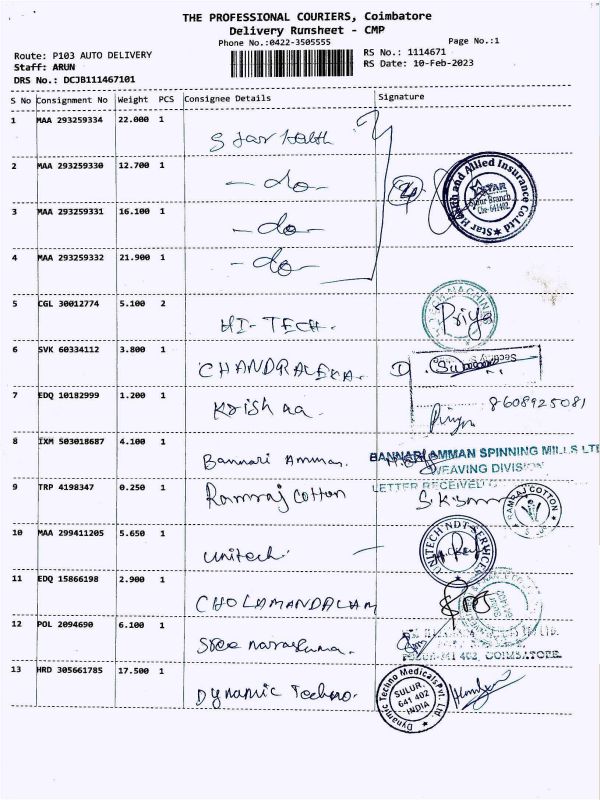 THE PROFESSIONAL COURIERS, Coimbatore
Delivery Runsheet - CMP
Phone No.:0422-3505555
Page No.:1
Route: P103 AUTO DELIVERY
RS No.: 1114671
Staff: ARUN
RS Date: 10-Feb-2023
DRS No.: DCJB111467101
S No Consignment No Weight PCS Consignee Details Signature
1 MAA 293259334 22.000 1 Star Health
2 MAA 293259330 12.700 1 - do -
Star Health and Allied Insurance Co.Ltd
STAR
Sulur Branch
Cbe-641402.
3 MAA 293259331 16.100 1 - do -
4 MAA 293259332 21.900 1 - do -
5 CGL 30012774 5.100 2 HI-TECH. Priya
6 SVK 60334112 3.800 1 CHANDRALEKA.
Security
7 EDQ 10182999 1.200 1 Krishna. 8608925081
8 IXM 503018687 4.100 1 Bannari Amman.
BANNARI AMMAN SPINNING MILLS LT
WEAVING DIVISION
LETTER RECEIVED
9 TRP 4198347 0.250 1 Ramraj Cotton
RAMRAJ COTTON
10 MAA 299411205 5.650 1 Unitech.
UNITECH NDT SERVICES
11 EDQ 15866198 2.900 1 CHOLAMANDALAM
12 POL 2094690 6.100 1 Sree narashuma.
SULUR-641 402, COIMBATORE.
13 HRD 305661785 17.500 1 Dynamic Techno.
Dynamic Techno Medicals Pvt. Ltd.
SULUR.
641 402
INDIA